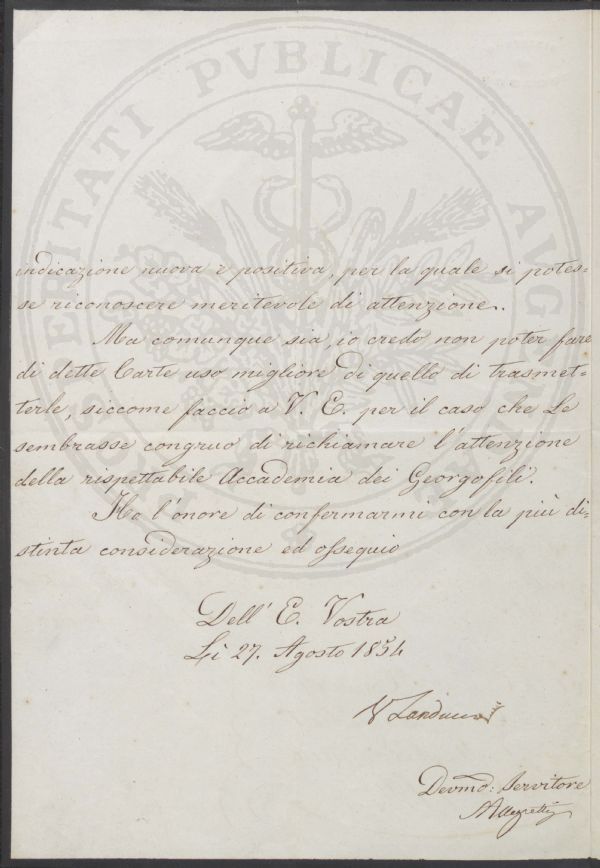 indicazione nuova e positiva, per la quale si potes=
se riconoscere meritevole di attenzione.
Ma comunque sia, io credo non poter fare
di dette Carte uso migliore di quello di trasmet=
terle, siccome faccio a V. E. per il caso che Le
sembrasse congruo di richiamare l'attenzione
della rispettabile Accademia dei Georgofili.
Ho l'onore di confermarmi con la più di=
stinta considerazione ed ossequio
Dell' E. Vostra
Li 27. Agosto 1854
V Landucci
Devmo: Servitore
PROSPERITATI PVBLICAE AVGENDAE